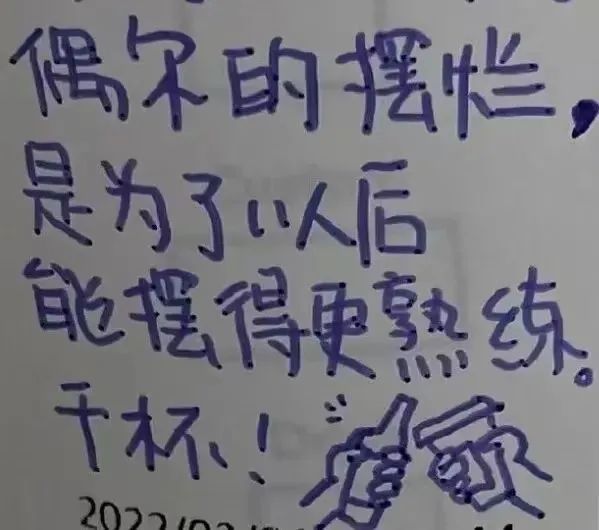 偶尔的摆烂，
是为了以后
能摆得更熟练。
干杯！